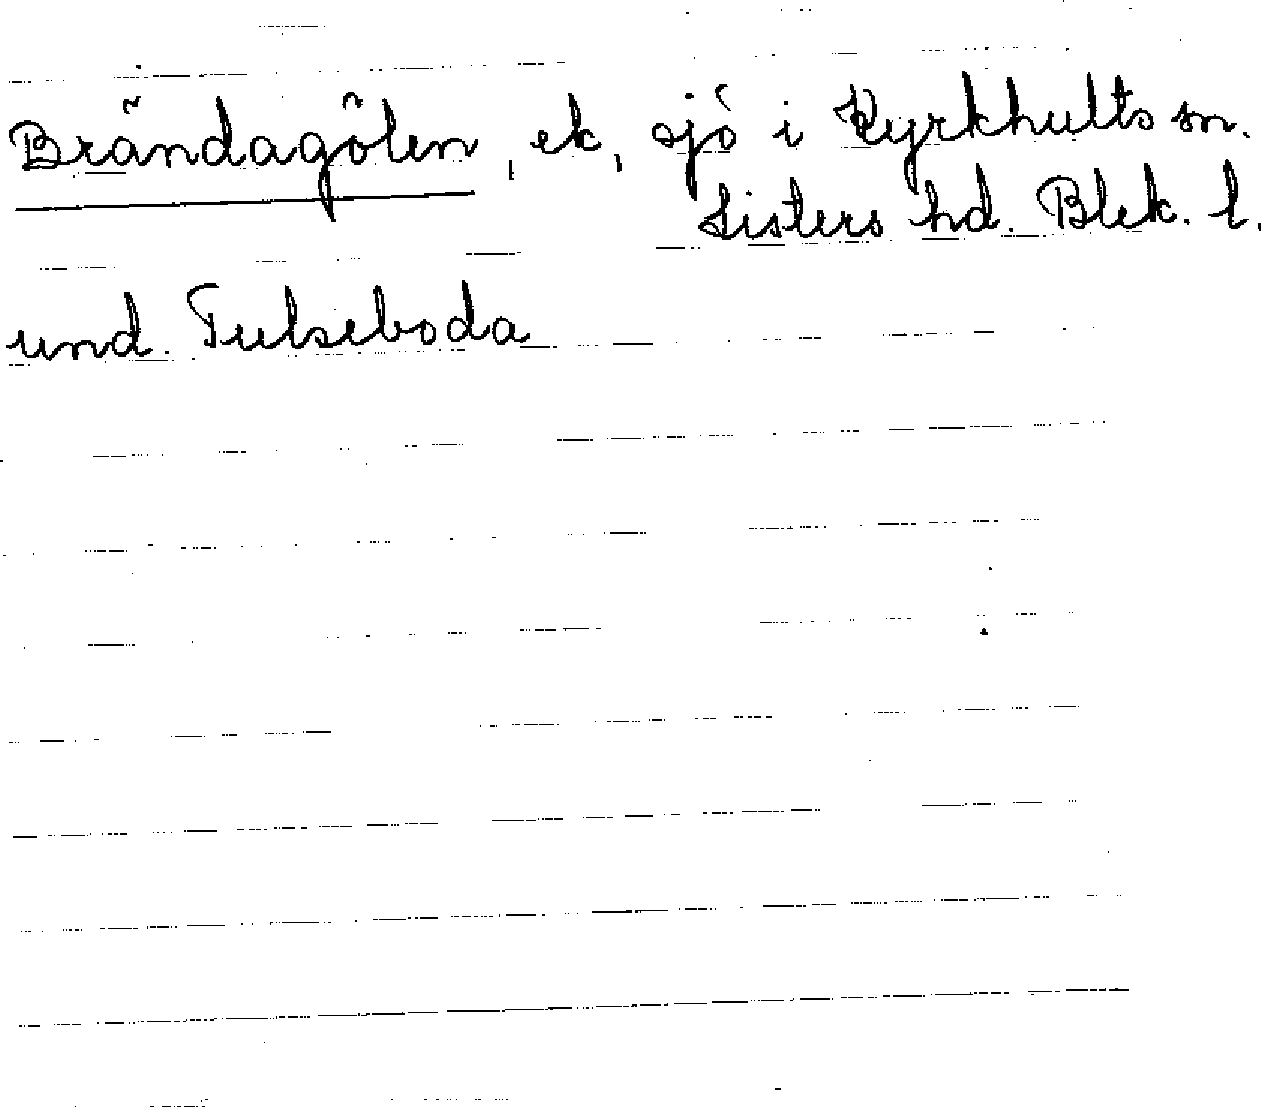 Brändagölen, ek, sjö i Kyrkhults sn.
Listers hd. Blek. l.
und. Tulseboda